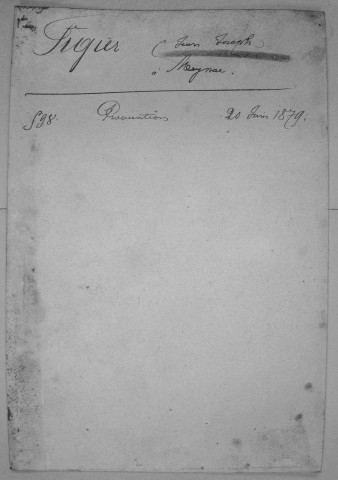 Figuier (Jean Joseph)
à Meyrac.
598. Procuration 20 Juin 1879.